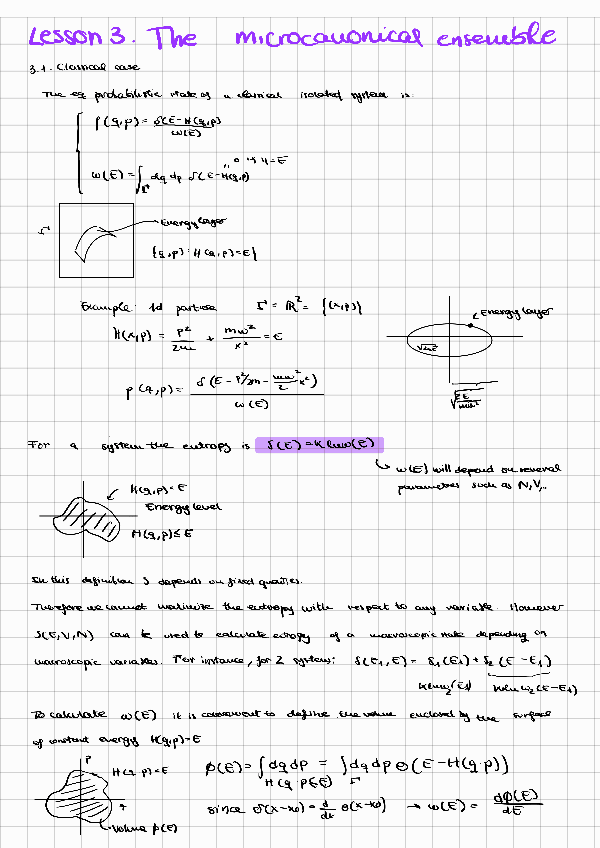 Lesson 3. The microcanonical ensemble
3.1. Classical case
The eq probabilistic state of a classical isolated system is:
ρ(q,p) = δ(E-H(q,p)) / ω(E)
ω(E) = ∫_Γ dq dp δ(E-H(q,p))
Γ
Energy layer
{q,p) : H(q,p)=E}
Example: 1d particle Γ = R² = {(x,p)}
Energy layer
H(x,p) = p²/2m + mω²/x² = E
√2mE
ρ(q,p) = δ(E - p²/2m - mω²/2 x²) / ω(E)
√2E/mω²
For a system the entropy is S(E) = k ln ω(E)
ω(E) will depend on several
parameters such as N,V,..
H(q,p)=E
Energy level
H(q,p)≤E
In this definition S depends on fixed quantities.
Therefore we cannot maximize the entropy with respect to any variable. However
S(E,V,N) can be used to calculate entropy of a macroscopic state depending on
macroscopic variables. For instance, for 2 system: S(E1,E) = S1(E1) + S2(E-E1)
k ln ω2(E-E1)
To calculate ω(E) it is convenient to define the volume enclosed by the surface
of constant energy H(q,p)=E
p
H(q,p)=E
ϕ(E) = ∫ dq dp = ∫ dq dp Θ(E-H(q,p))
H(q,p)≤E Γ
q
since δ(x-x0) = d/dx Θ(x-x0) → ω(E) = dϕ(E)/dE
Volume ϕ(E)